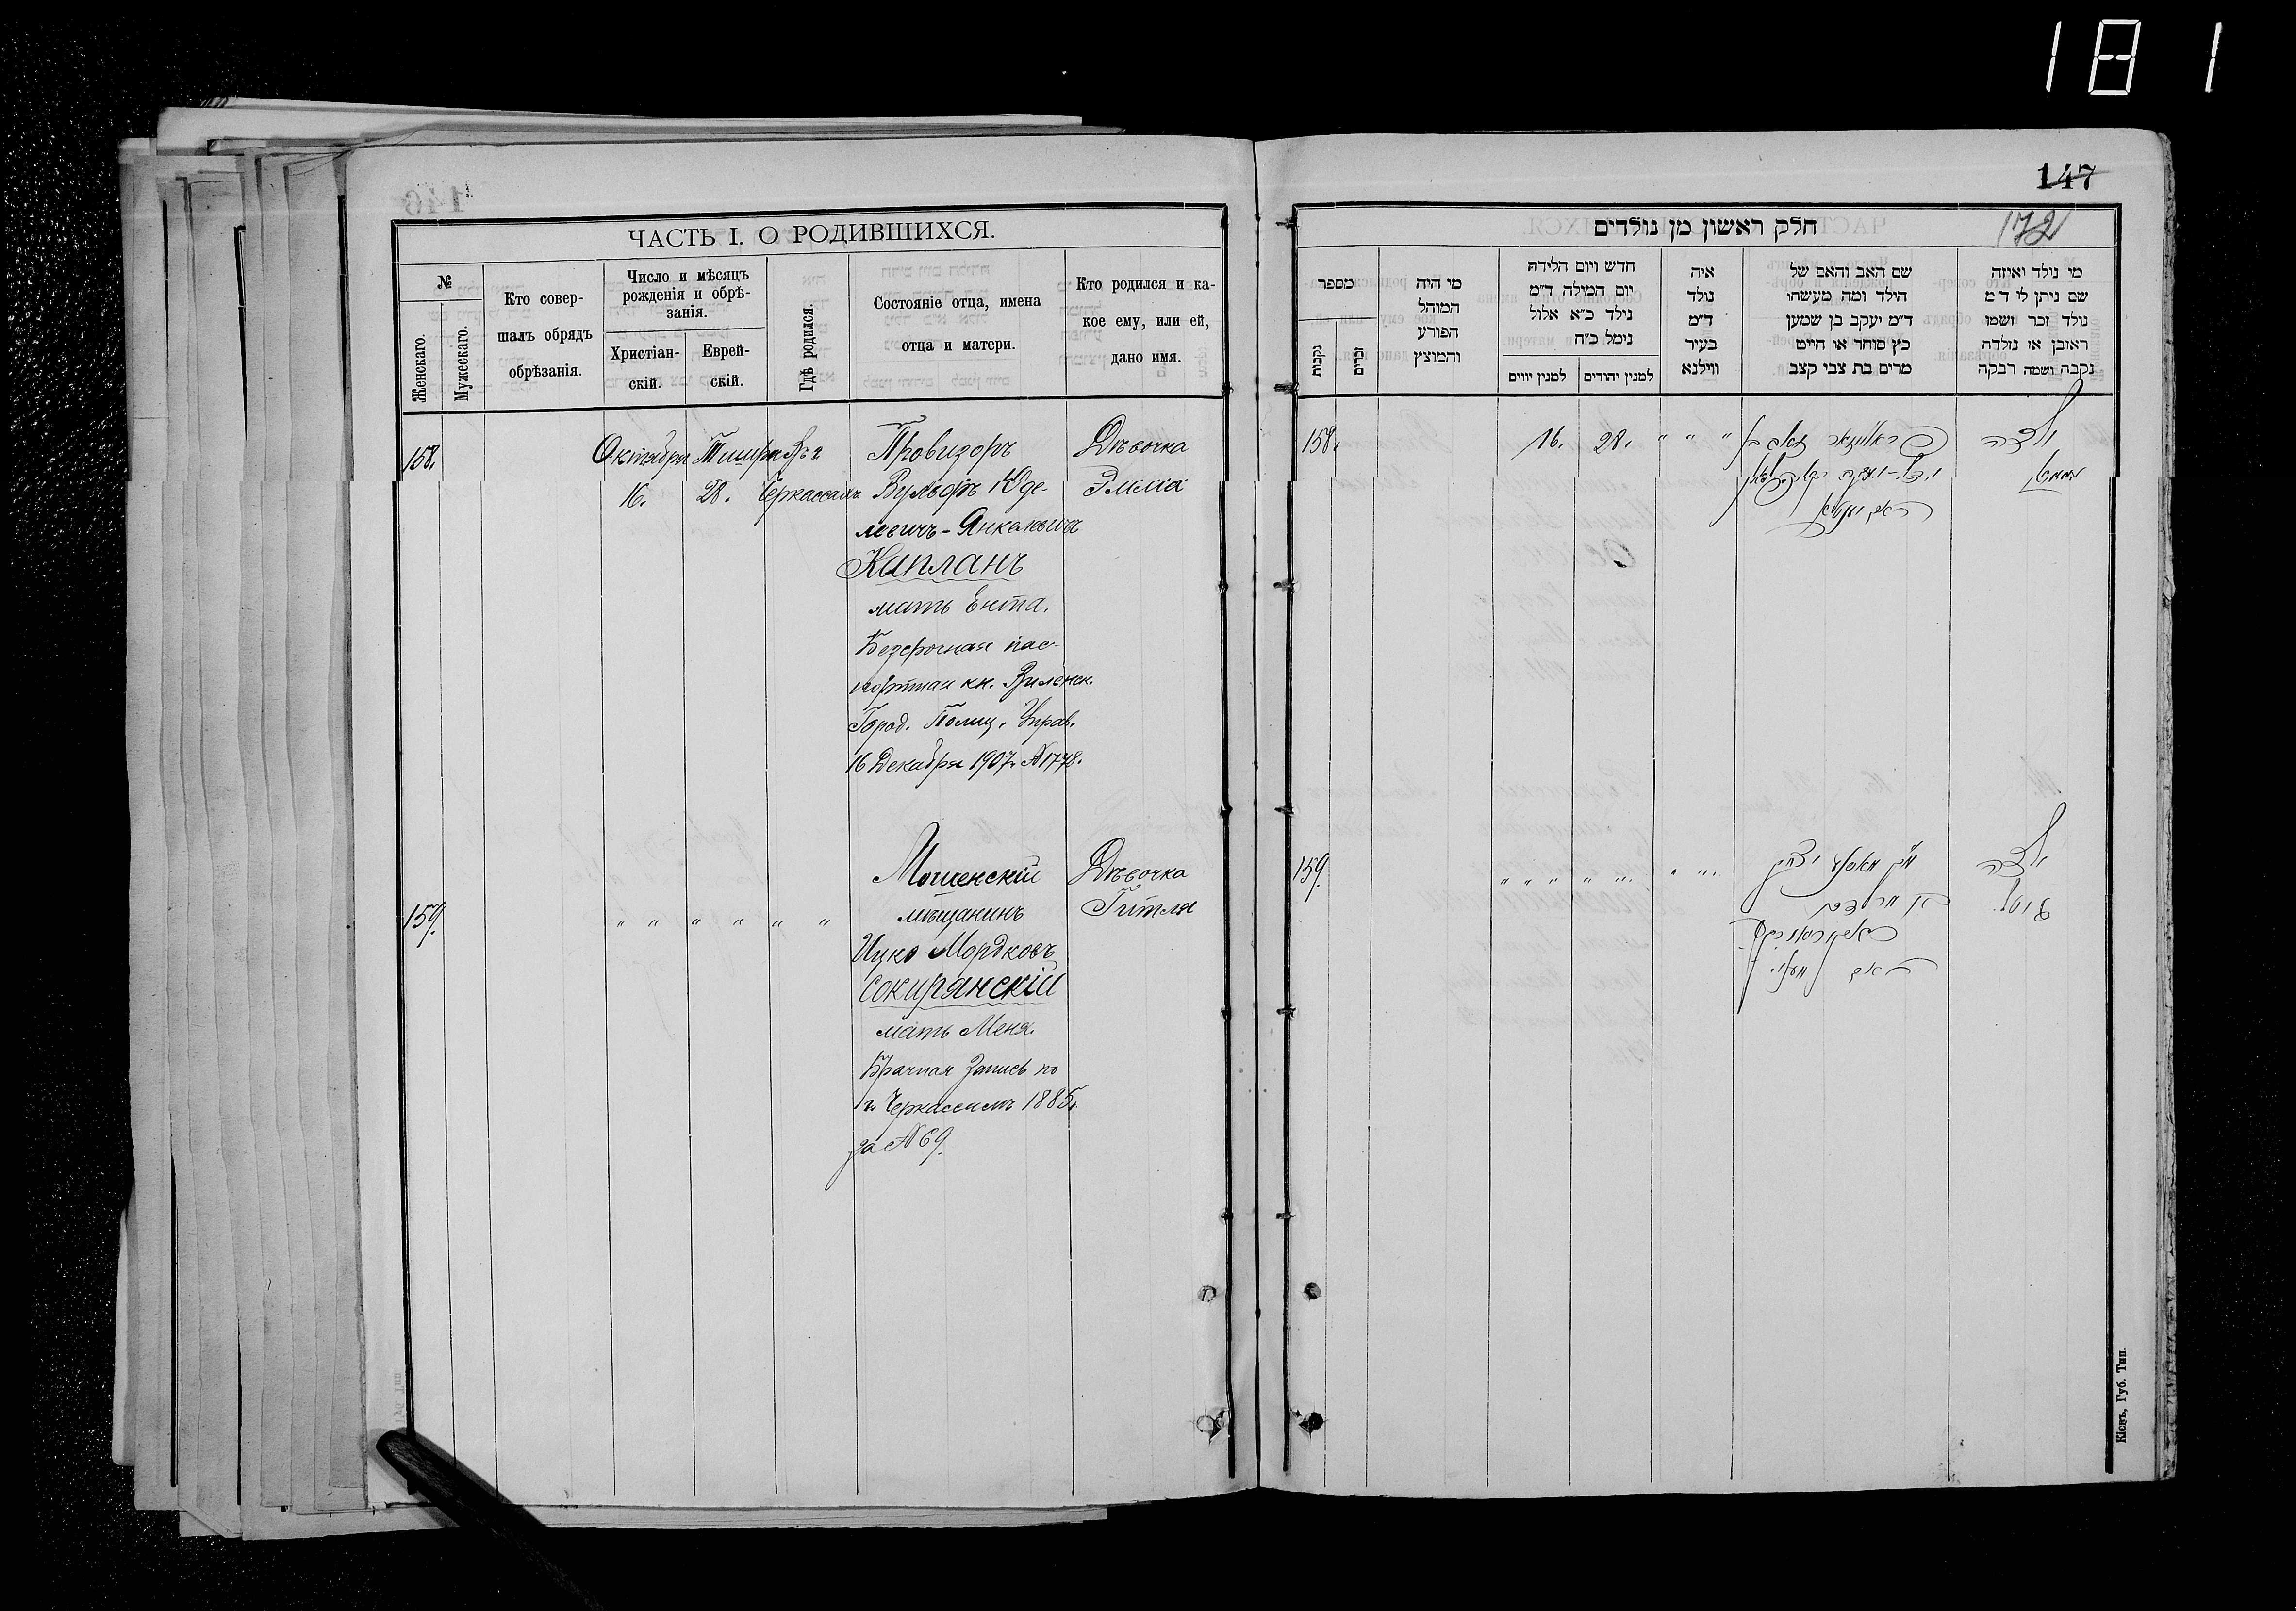 181
147
172
ЧАСТЬ I. О РОДИВШИХСЯ.
№
Женскаго.
Мужескаго.
Кто совер-
шалъ обрядъ
обрѣзанія.
Число и мѣсяцъ
рожденія и обрѣ-
занія.
Христіан-
скій.
Еврей-
скій.
Гдѣ родился.
Состояніе отца, имена
отца и матери.
Кто родился и ка-
кое ему, или ей,
дано имя.
158.
Октября
16.
Тишри
28.
Въ г.
Черкассахъ
Провизоръ
Вульфъ Юде-
левичъ-Янкелевичъ
Капланъ
мать Ента.
Безсрочная пас-
портная кн. Виленск.
Город. Полиц. Управ.
16 Декабря 1907г. №1778.
Дѣвочка
Эмма
159.
" " " " " "
Мошенскій
мѣщанинъ
Ицко Мордковъ
Сокирянскій
мать Меня.
Брачная запись по
г. Черкассамъ 1885г.
за №69.
Дѣвочка
Гитля
חלק ראשון מן נולדים
מספר
נקבות
זכרים
מי היה
המוהל
הפורע
והמוצץ
חדש ויום הלידה
יום המילה ד״מ
נילד כ״א אלול
נימל כ״ח
למנין יווים
למנין יהודים
איה
נולד
ד״מ
בעיר
ווילנא
שם האב והאם של
הילד ומה מעשהו
ד״מ יעקב בן שמען
כץ סוחר או חייט
מרים בת צבי קצב
מי נולד ואיזה
שם ניתן לו ד״מ
נולד זכר ושמו
ראובן או נולדה
נקבה ושמה רבקה
158.
16.
28.
" " "
159.
" " " " " " "
Кіевъ, Губ. Тип.